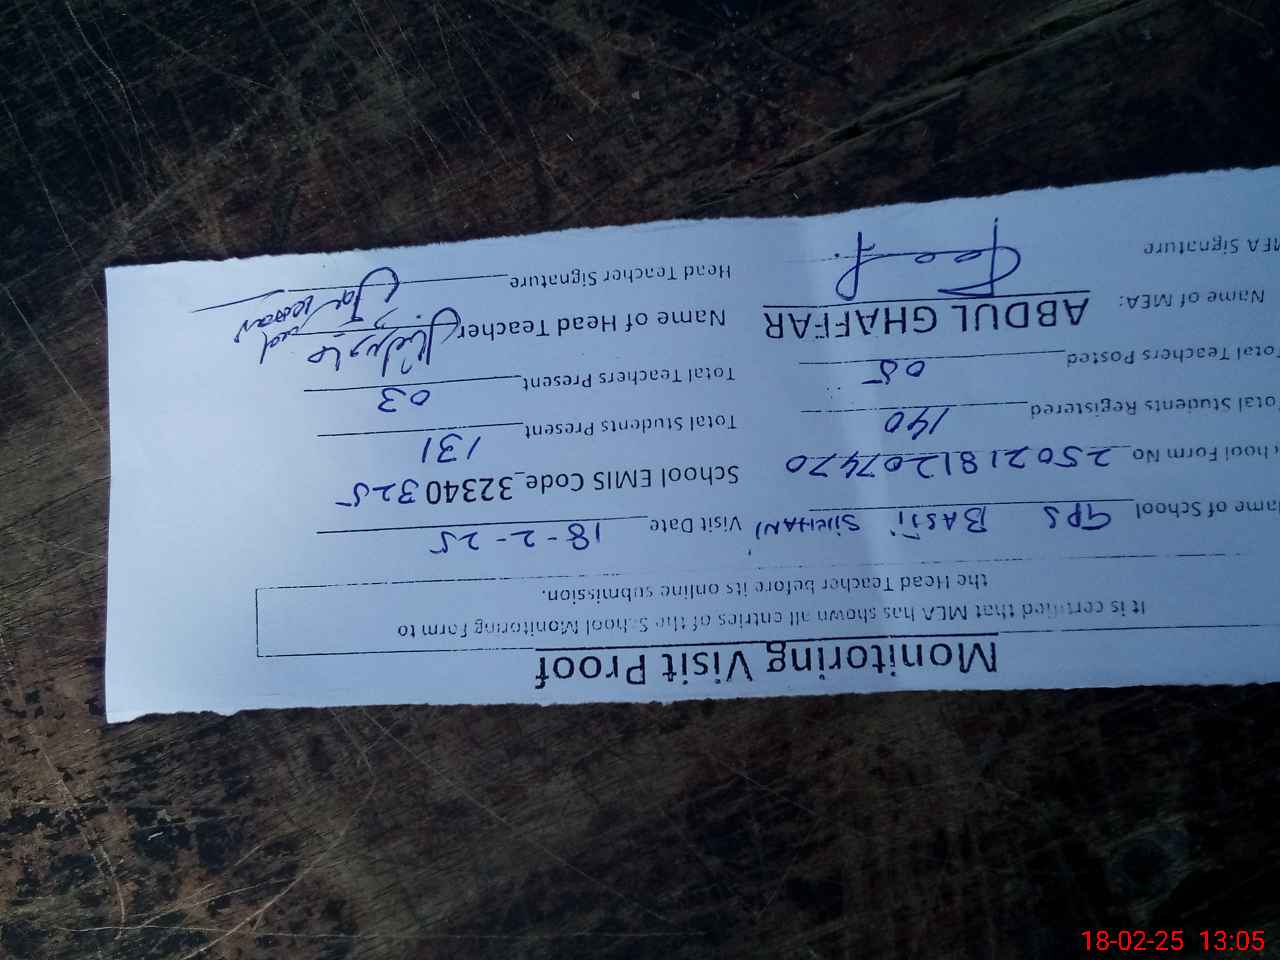 Monitoring Visit Proof
It is certified that MEA has shown all entries of the School Monitoring Form to
the Head Teacher before its online submission.
ame of School GPS BASTI SIKHANI Visit Date 18-2-25
chool Form No 2502181207470 School EMIS Code 32340325
otal Students Registered 140 Total Students Present 131
otal Teachers Posted 05 Total Teachers Present 03
Name of MEA: ABDUL GHAFFAR Name of Head Teacher
MEA Signature Head Teacher Signature
18-02-25 13:05